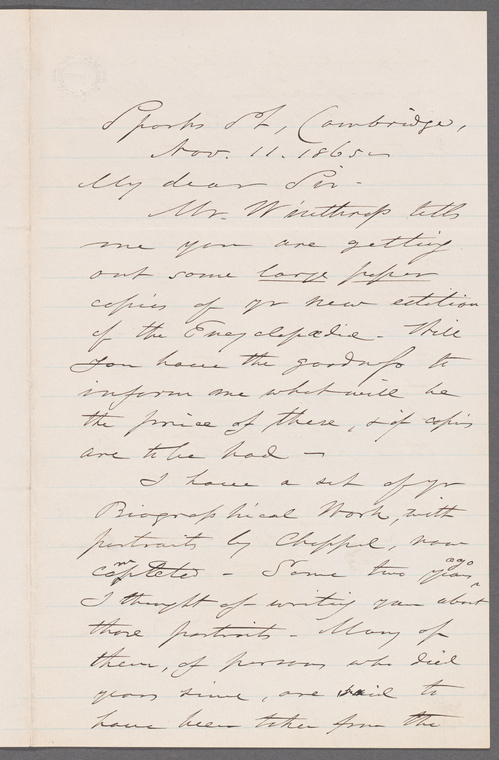 Sparks St, Cambridge,
Nov. 11. 1865.
My dear Sir -
Mr. Winthrop tells
me you are getting
out some large paper
copies of yr new edition
of the Encyclopædia - Will
you have the goodness to
inform me what will be
the price of these, & if copies
are to be had -
I have a set of yr
Biographical Work, with
portraits by Chappel, now
completed - Some two years ago
I thought of writing you about
those portraits - Many of
them, of persons who died
years since, are said to
have been taken from the